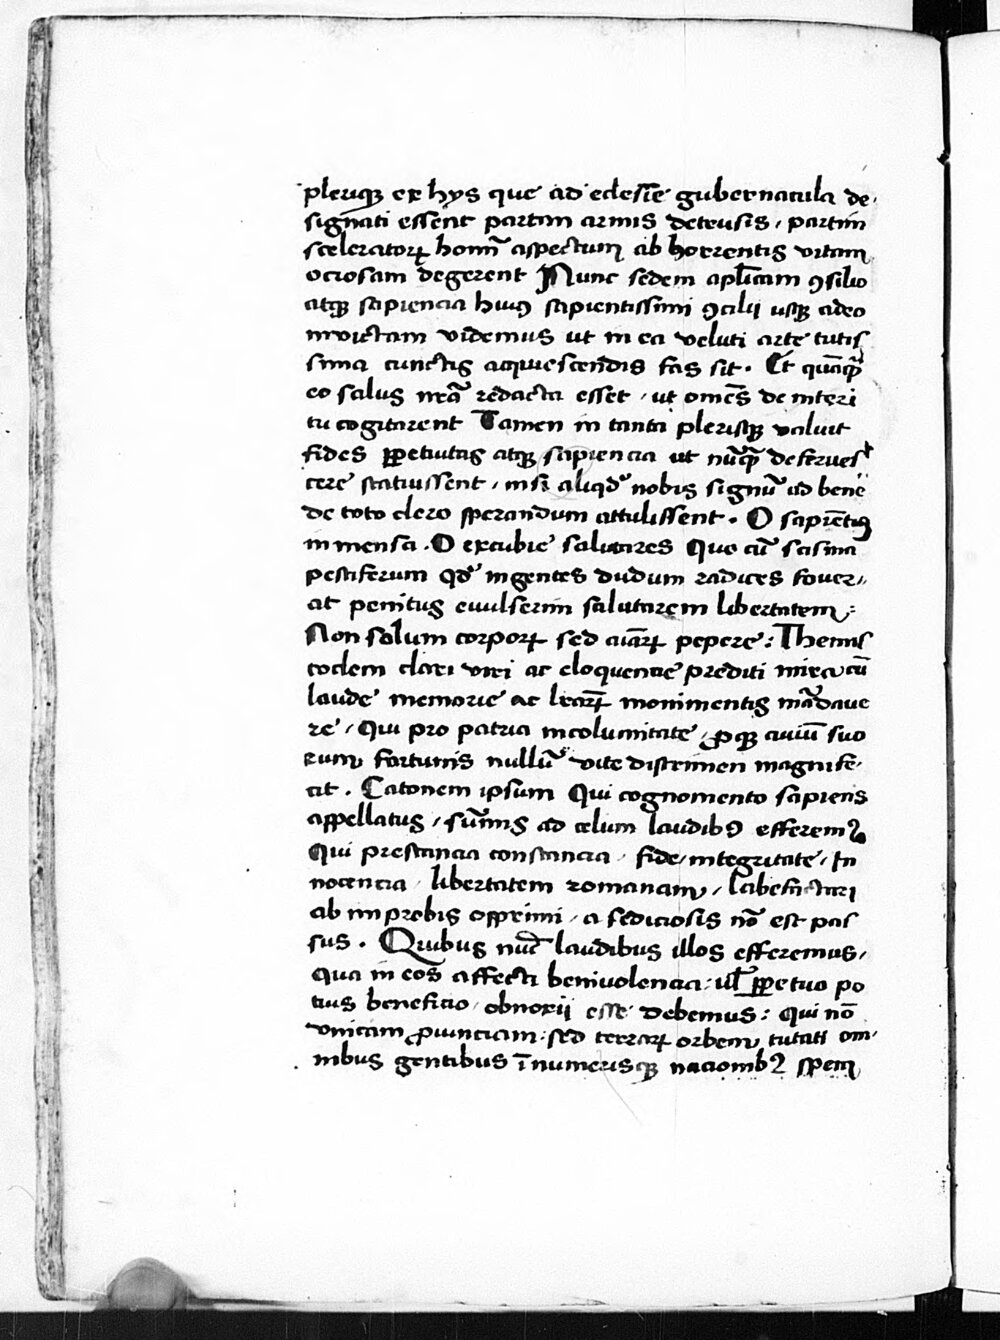 pleriq̄ ex hys que ad eclesīe gubernacula de-
signati essent partim armis detrusis / partim
sceleratoꝝ homī aspectum ab horrentis vitam
ociosam degerent Nunc sedem apl̄icam ꝯsilio
atqꝫ sapiencia huiꝰ sapientissimi ꝯcilij usqꝫ adeo
invictam videmus ut in ea veluti arte tutis
sima cunctis acquiescendis fas sit . Et quāqꝫ
eo salus nr̄a redacta esset / ut omēs de interi
tu cogitarent Tamen in tanta plerisqꝫ valuit
fides ꝑpetuitas atqꝫ sapiencia ut nūqꝫ deferues
cere statuissent / nisi aliqd̄ nobis signū ad bene
de toto clero sperandum attulissent . O sapiētia
inmensa . O excubie salutares Quo cū scisma
pestiferum qd̄ ingentes dudum radices fouer/
at penitus euulserint salutarem libertatem :
Non solum corporꝝ sed aīarꝝ pepere : Themis
toclem clari viri ac eloquentie prediti mira cū
laude memorie ac lr̄arꝝ monimentis mādaue
re / Qui pro patria incolumitate / ꝓqꝫ ciuiū suo
rum fortunis nullū vite discrimen magnife-
cit . Catonem ipsum Qui cognomento sapiens
appellatus / sūmis ad celum laudibꝰ efferemꝰ
Qui prestancia constancia / fide / integritate / In
nocencia / libertatem romanam / labefactari
ab improbis opprimi / a sediciosis nō est pas
sus . Quibus nūc laudibus illos efferemus /
Qua in eos affecti beniuolencia / ul̄ ꝑpetuo po
tius beneficio / obnoxij esse debemus : Qui nō
vnicam ꝓuinciam : sed terrarꝝ orbem tutati om-
nibus gentibus īnumerisqꝫ nacionibꝰ spem